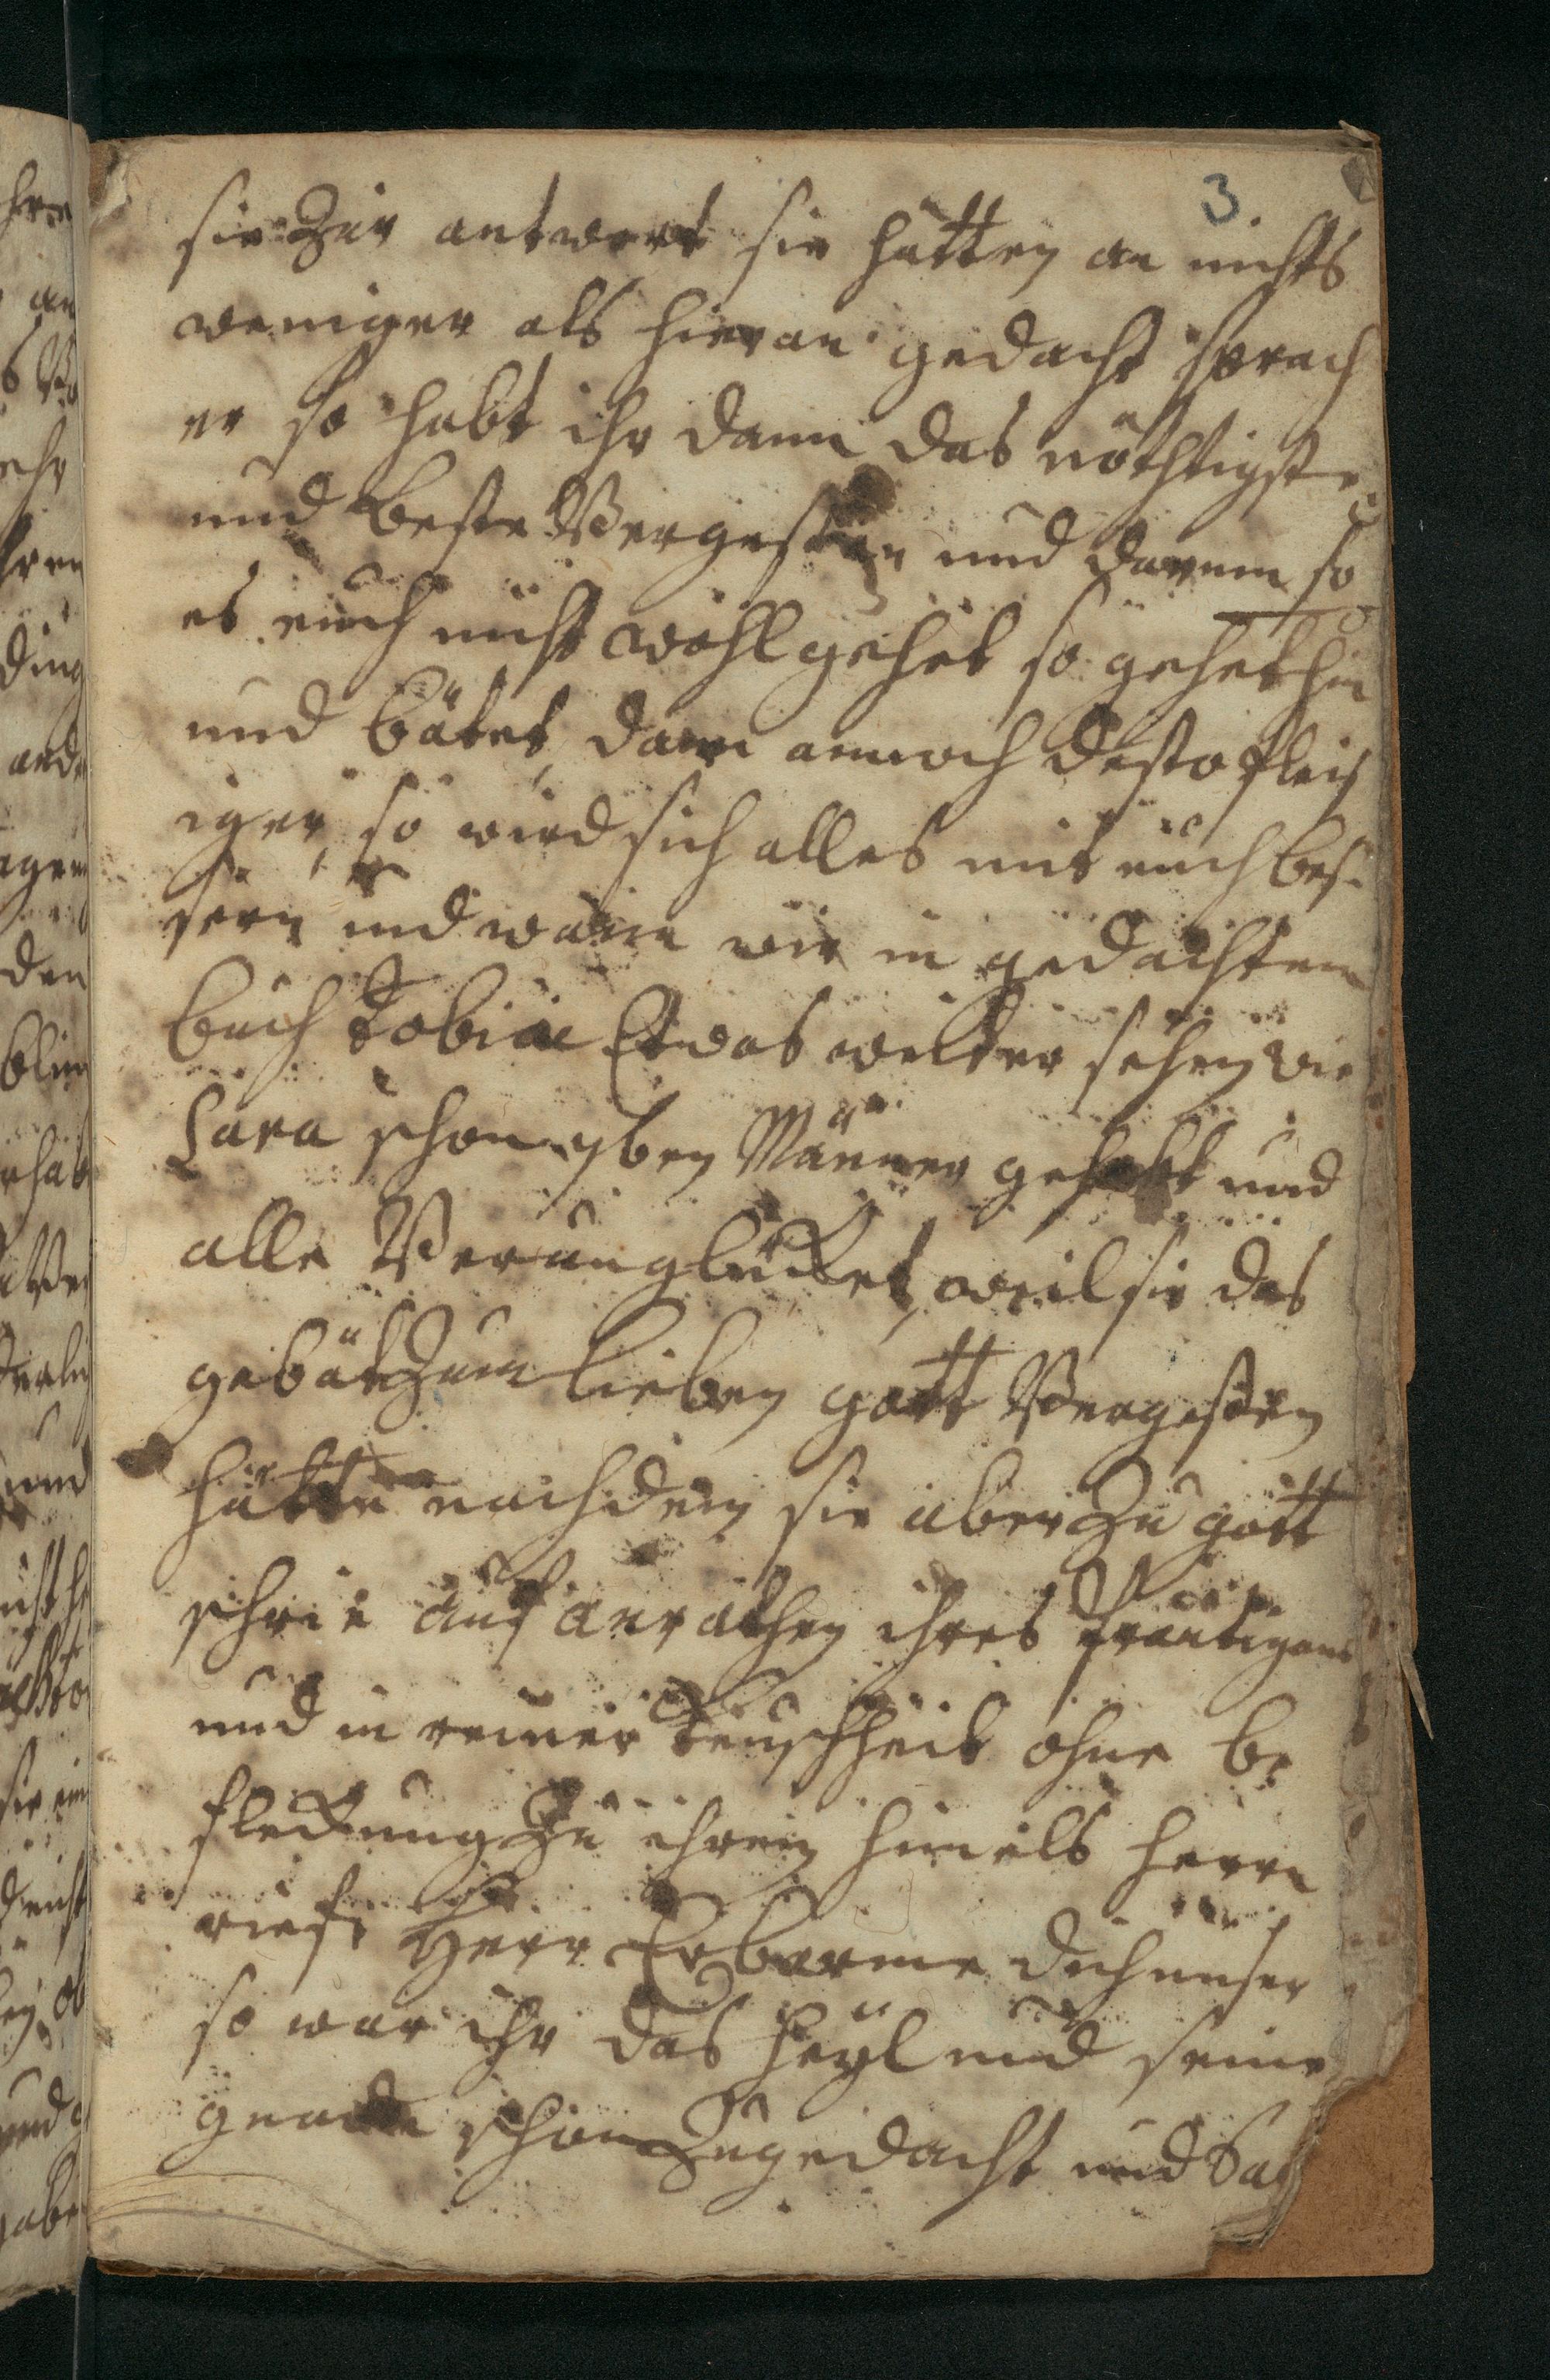 3
sie Zur antwort sie hätten an nichts
weniger als hieran gedacht sprach
er so habt ihr dann das nöthigste
und beste Vergessen und darum so
es euch nicht wohl gehet so gehet hin
und bätet, dann annoch desto fleis
iger, so wird sich alles mit euch bes-
sern und wann wir in gedachtem
buch Tobiae Etwas weiter sehen wie
Sara schon 7ben Männer gehabt und
alle Verunglücket, weil sie das
gebät Zum lieben gott Vergessen
hätte nachdem sie aber Zu gott
schrie auf anrathen ihres bräutigams
und in reiner Keuschheit ohne be
fleckung Zu ihrem himels herrn
rief: Herr Erbarme dich unser
so war ihr das heyl und seine
gnade schon Zugedacht und